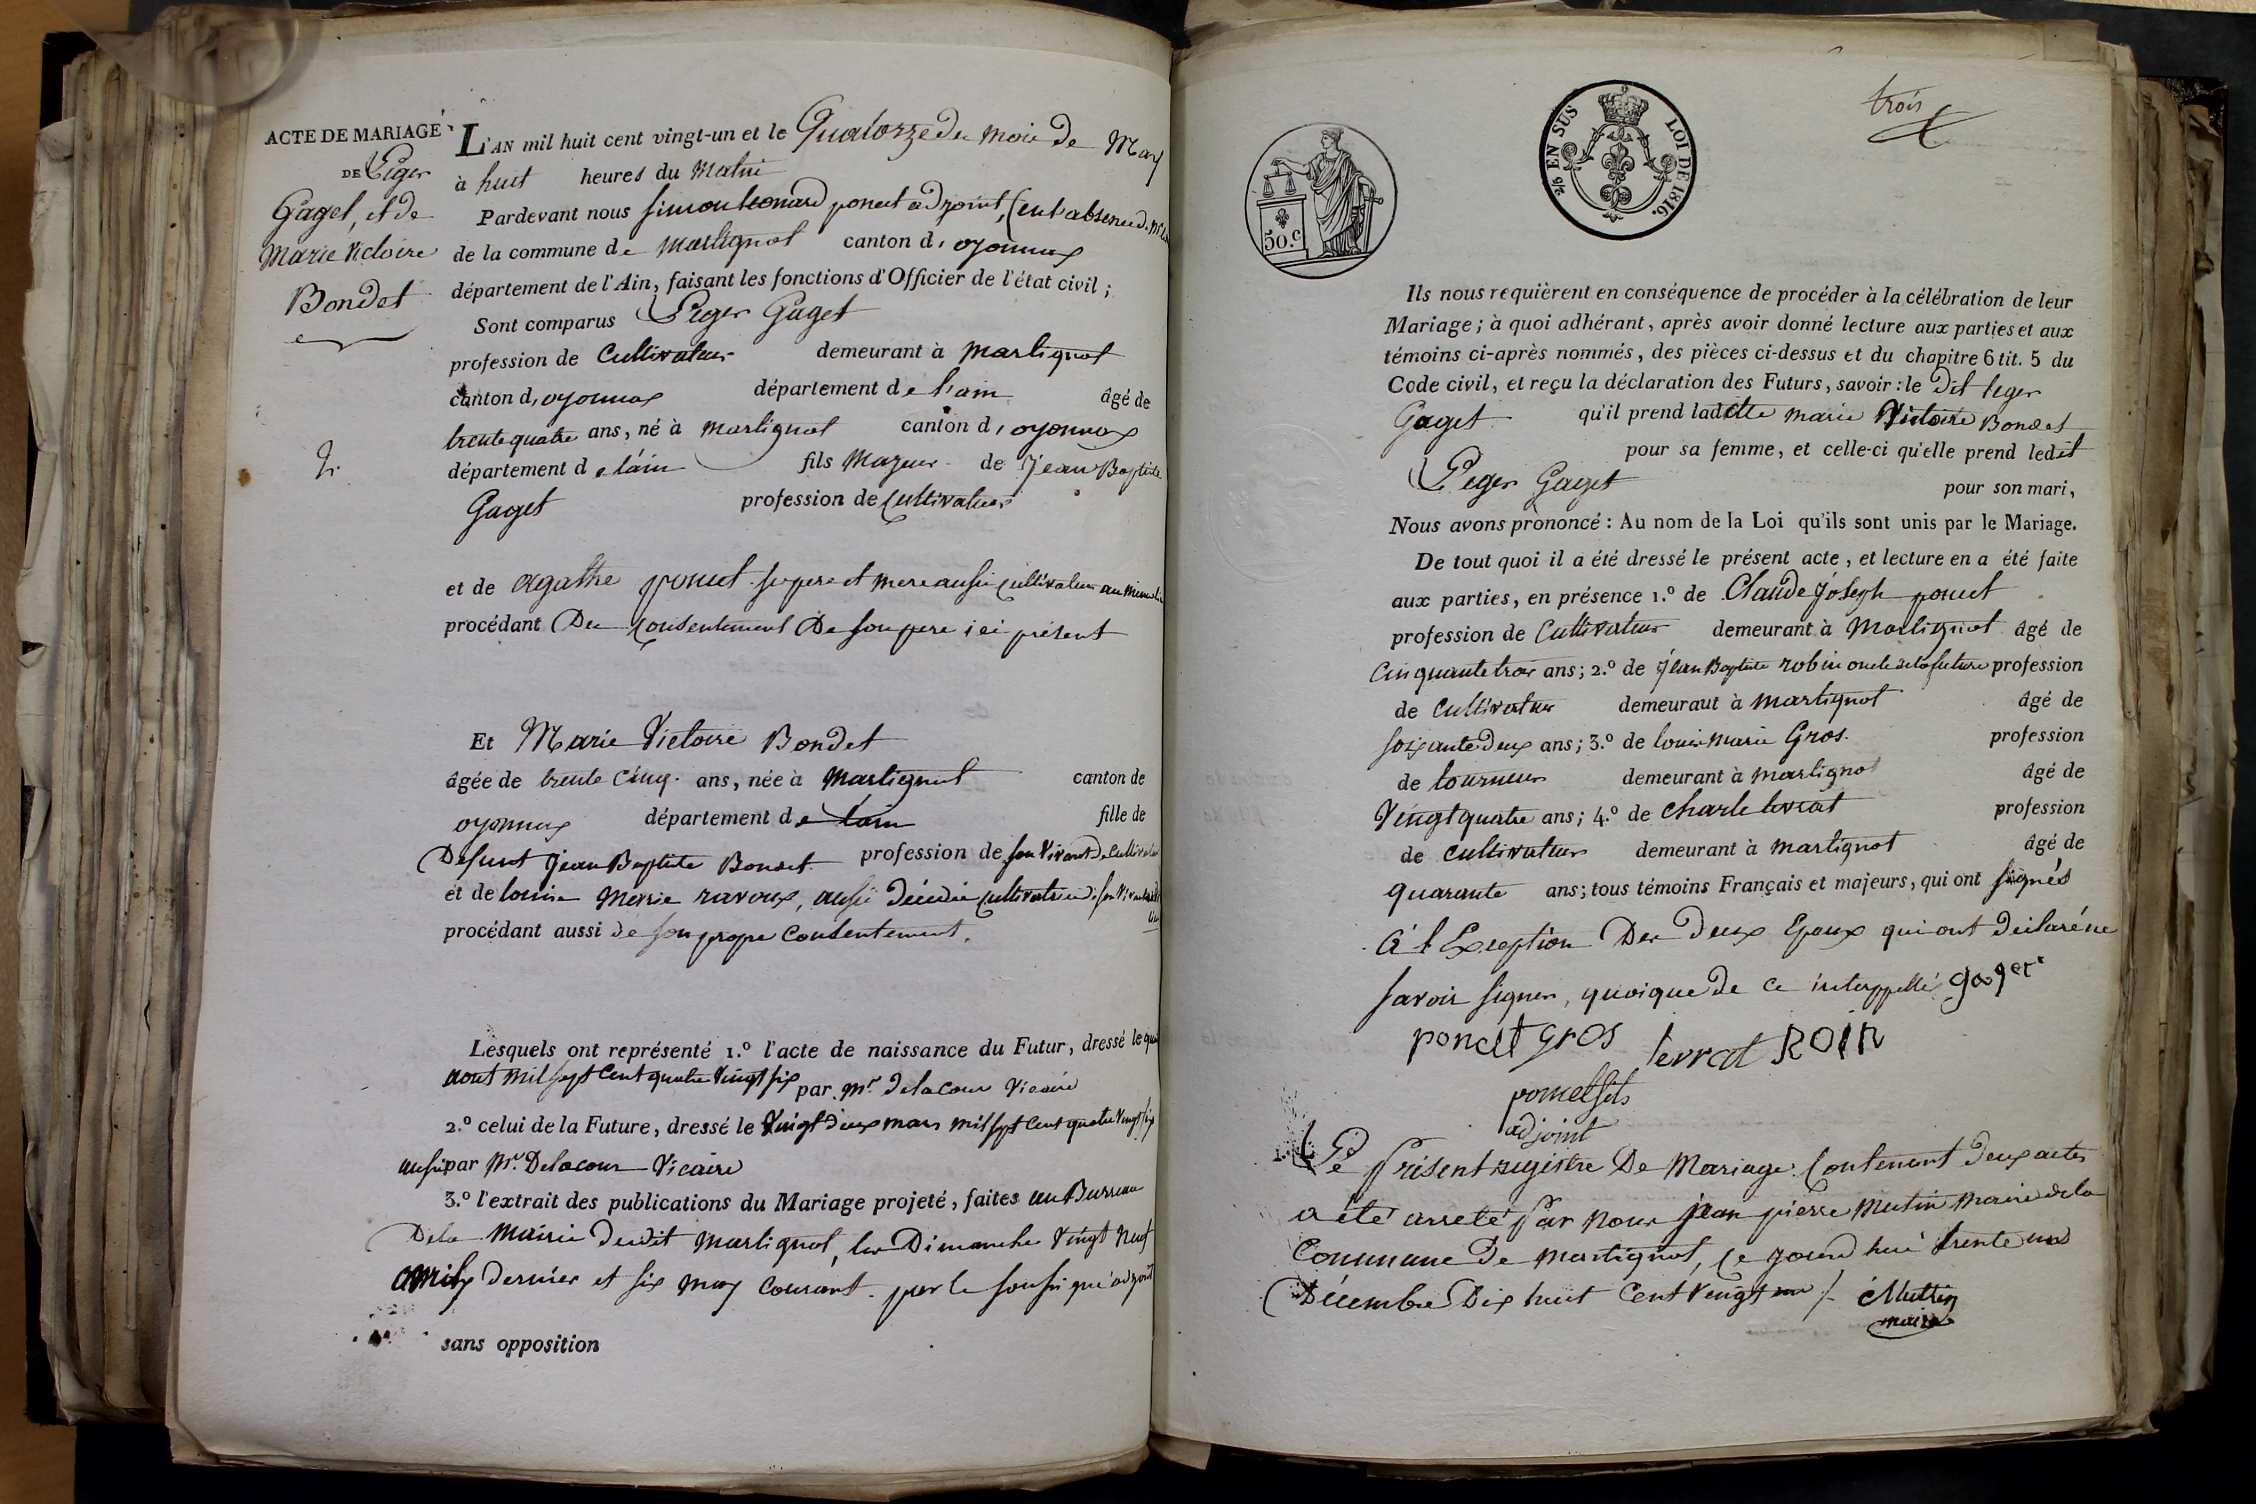 ACTE DE MARIAGE
DE Léger
Gaget, et de
Marie Victoire
Bondet
2.
L'AN mil huit cent vingt-un et le Quatorze du mois de May
à huit heures du Matin
Pardevant nous Simon Leonard poncet adjoint, (en l'absence d.
de la commune de Martignat canton d, oyonnax
département de l'Ain, faisant les fonctions d'Officier de l'état civil ;
Sont comparus Léger Gaget
profession de Cultivateur demeurant à Martignat
canton d, oyonnax département de l'ain âgé de
trente quatre ans, né à Martignat canton d, oyonnax
département de l'ain fils Majeur de Jean Baptiste
Gaget profession de Cultivateur
et de Agathe poncet ses pere et mere aussi Cultivateur au même lieu
procédant Du Consentement De son pere ici présent
Et Marie Victoire Bondet
âgée de trente Cinq. ans, née à Martignat canton de
oyonnax département de l'ain fille de
Defunt Jean Baptiste Bondet profession de son Vivant De Cultivateur
et de Louise Marie ravoux, aussi Décedée Cultivatrice de son Vivant
procédant aussi de son propre Consentement.
Lesquels ont représenté 1.º l'acte de naissance du Futur, dressé le
aout mil sept Cent quatre Vingt six par Mr. Delacour Vicaire
2.º celui de la Future, dressé le Vingt deux mars mil sept Cent quatre Vingt six
aussi par Mr. Delacour Vicaire
3.º l'extrait des publications du Mariage projeté, faites au Bureau
De la Mairie dudit Martignat, les Dimanche Vingt Neuf
avril dernier et six may Courant par le soussigné adjoint
sans opposition
trois
50.c
2/5 EN SUS LOI DE 1816.
Ils nous requièrent en conséquence de procéder à la célébration de leur
Mariage ; à quoi adhérant, après avoir donné lecture aux parties et aux
témoins ci-après nommés, des pièces ci-dessus et du chapitre 6 tit. 5 du
Code civil, et reçu la déclaration des Futurs, savoir : le Dit leger
Gaget qu'il prend ladite Marie Victoire Bondet
pour sa femme, et celle-ci qu'elle prend ledit
Léger Gaget pour son mari,
Nous avons prononcé : Au nom de la Loi qu'ils sont unis par le Mariage.
De tout quoi il a été dressé le présent acte, et lecture en a été faite
aux parties, en présence 1.º de Claude Joseph poncet
profession de Cultivateur demeurant à Martignat âgé de
Cinquante trois ans ; 2.º de Jean Baptiste robin oncle de la future profession
de Cultivateur demeuraut à Martignat âgé de
soixante deux ans ; 3.º de Louis Marie Gros. profession
de tourneur demeurant à Martignat âgé de
Vingt quatre ans ; 4.º de Charle levrat profession
de Cultivateur demeurant à Martignat âgé de
quarante ans ; tous témoins Français et majeurs, qui ont signés
à l'Exception Des deux Epoux qui ont Déclaré ne
savoir signer, quoique de ce interppellé gaget
poncet gros levrat ROIN
poncet fils
adjoint
Le Présent registre De Mariage Contenant deux actes
a été arreté par nous Jean pierre Mutin Maire de la
Commune de Martignat, ce jourd'hui trente un
Décembre Dix huit Cent Vingt un /. Muttin
maire